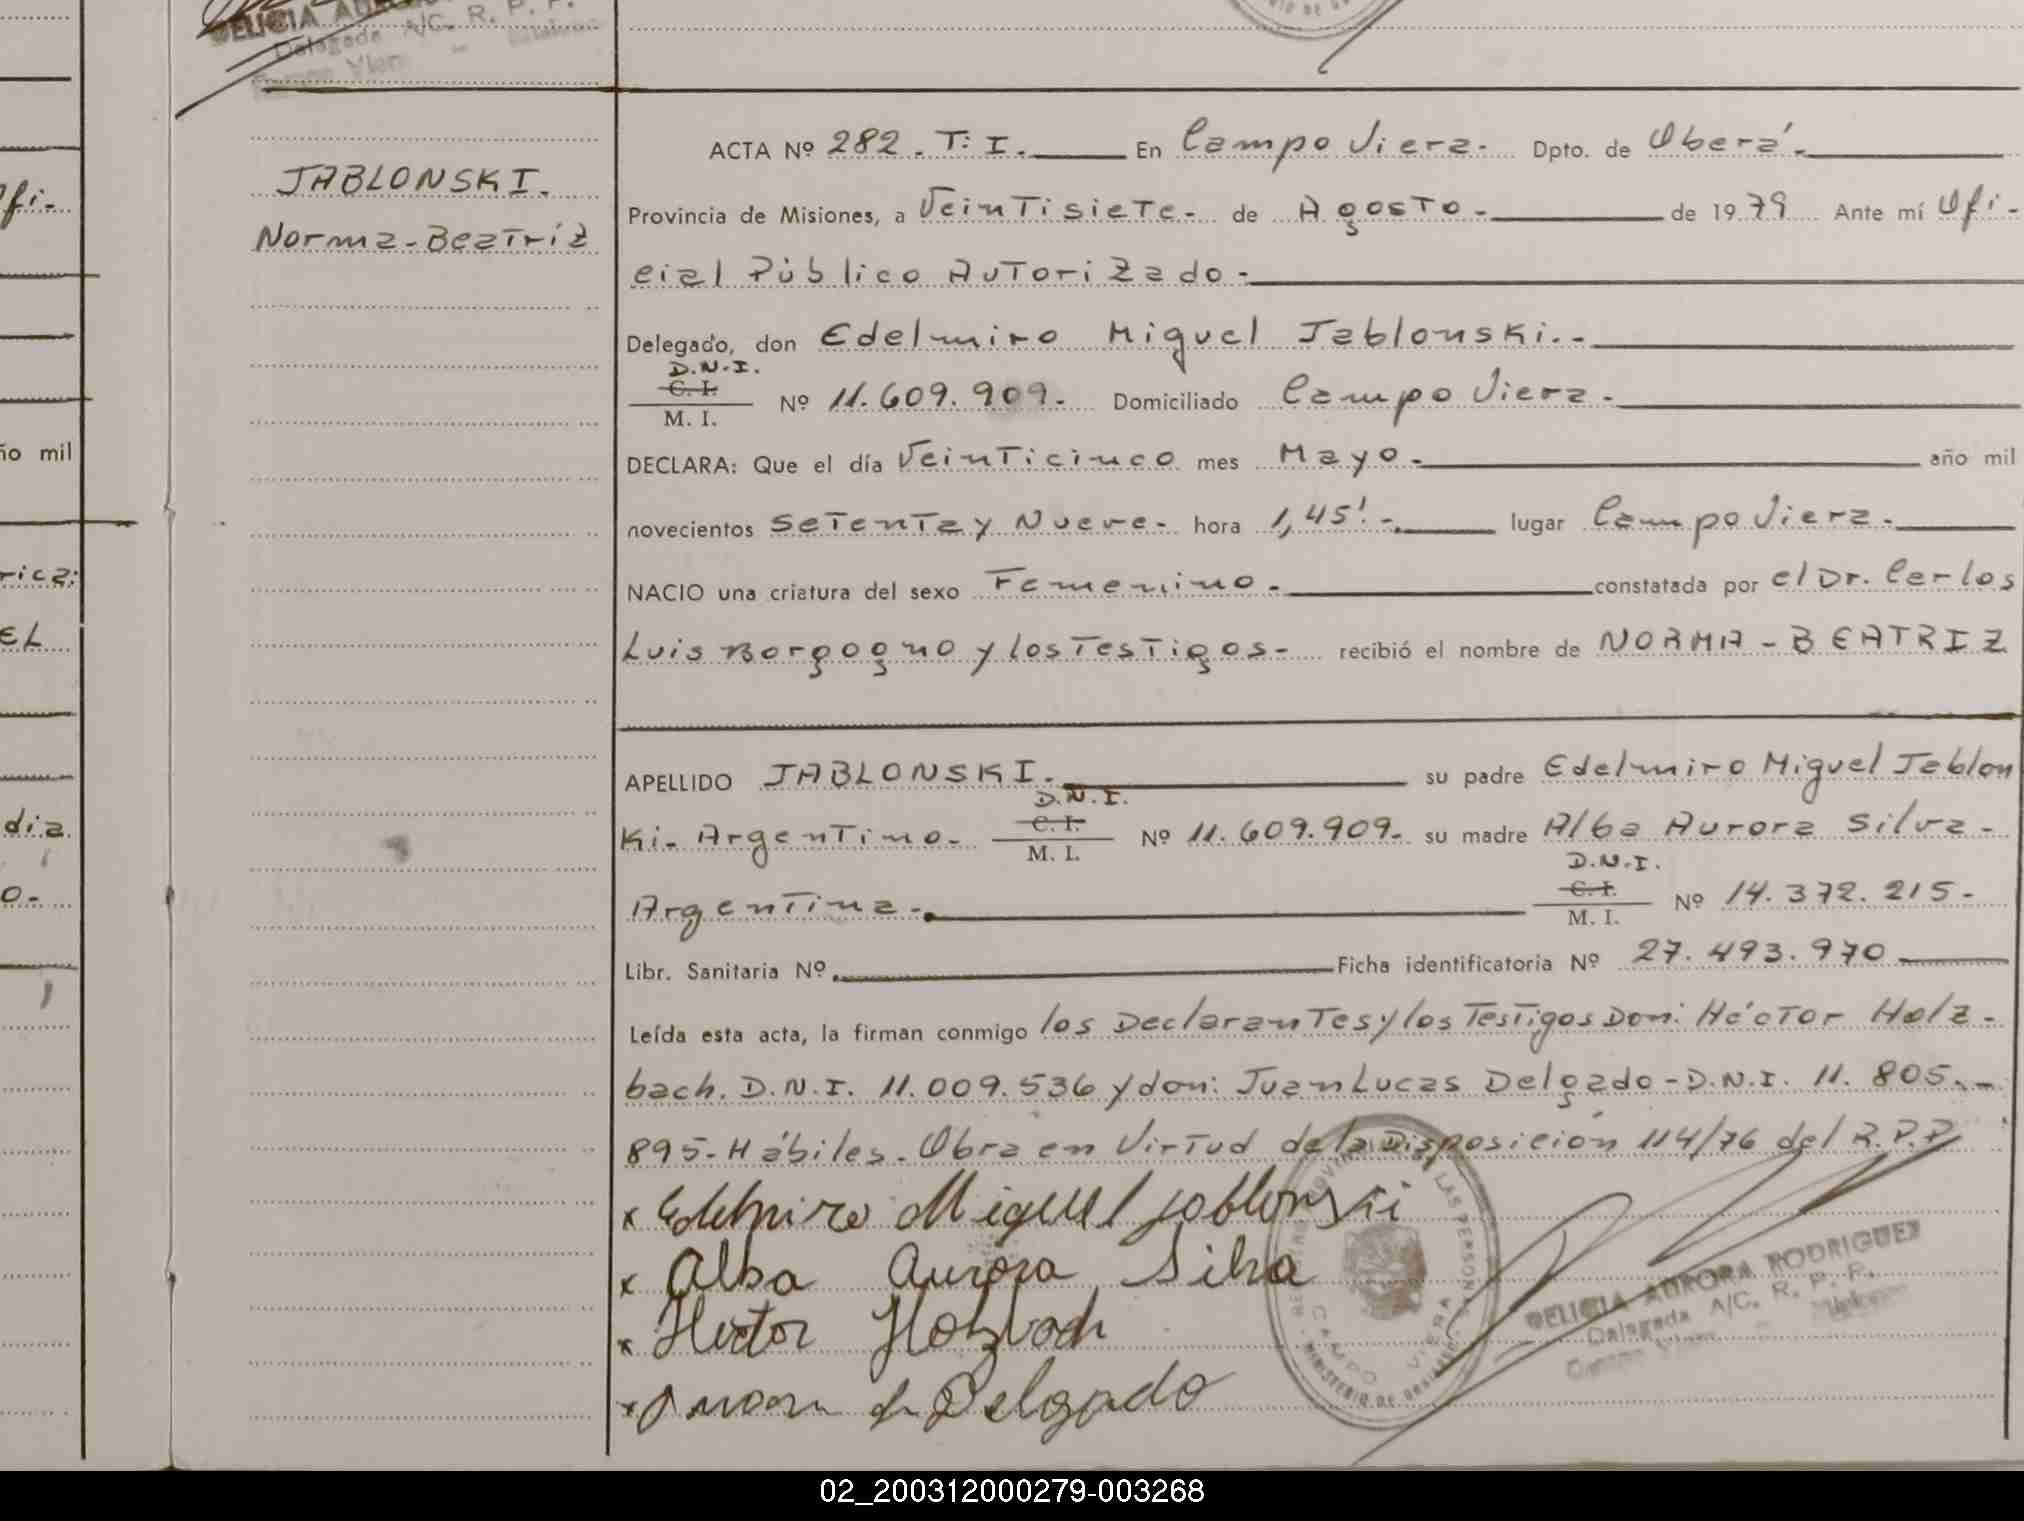 DELICIA AURO
Delegada A/C. R. P. P.
JABLONSKI.
Norma-Beatriz
ACTA Nº 282. T: I. En Campo Viera. Dpto. de Oberá.
Provincia de Misiones, a Veintisiete- de Agosto- de 1979 Ante mí Ofi-
cial Público Autorizado-
Delegado, don Edelmiro Miguel Jablonski.-
D.N.I.
C. I.
M. I. Nº 11.609.909. Domiciliado Campo Viera.
DECLARA: Que el día Veinticinco mes Mayo. año mil
novecientos Setenta y Nueve- hora 1,45'.- lugar Campo Viera.
NACIO una criatura del sexo Femenino. constatada por el Dr. Carlos
Luis Borgogno y los Testigos- recibió el nombre de NORMA-BEATRIZ
APELLIDO JABLONSKI. su padre Edelmiro Miguel Jablon
D.N.I.
C. I.
ki. Argentino. M. I. Nº 11.609.909. su madre Alba Aurora Silva-
D.N.I.
C. I.
Argentina. M. I. Nº 14.372.215-
Libr. Sanitaria Nº. Ficha identificatoria Nº 27.493.970
Leída esta acta, la firman conmigo los Declarantes y los Testigos Don: Héctor Holz-
bach. D.N.I. 11.009.536 y don: Juan Lucas Delgado-D.N.I. 11.805.-
895-Hábiles. Obra en Virtud de la Disposición 114/76 del R.P.P
x Edelmiro Miguel Jablonski
x Alba Aurora Silva
x Hector Holzbach
x Juan Delgado
DELICIA AURORA RODRIGUEZ
Delegada A/C. R. P. P.
LAS PERSONAS
CAMPO VIERA
MINISTERIO DE
ño mil
fi-
rica:
EL
dia
o-
02_200312000279-003268